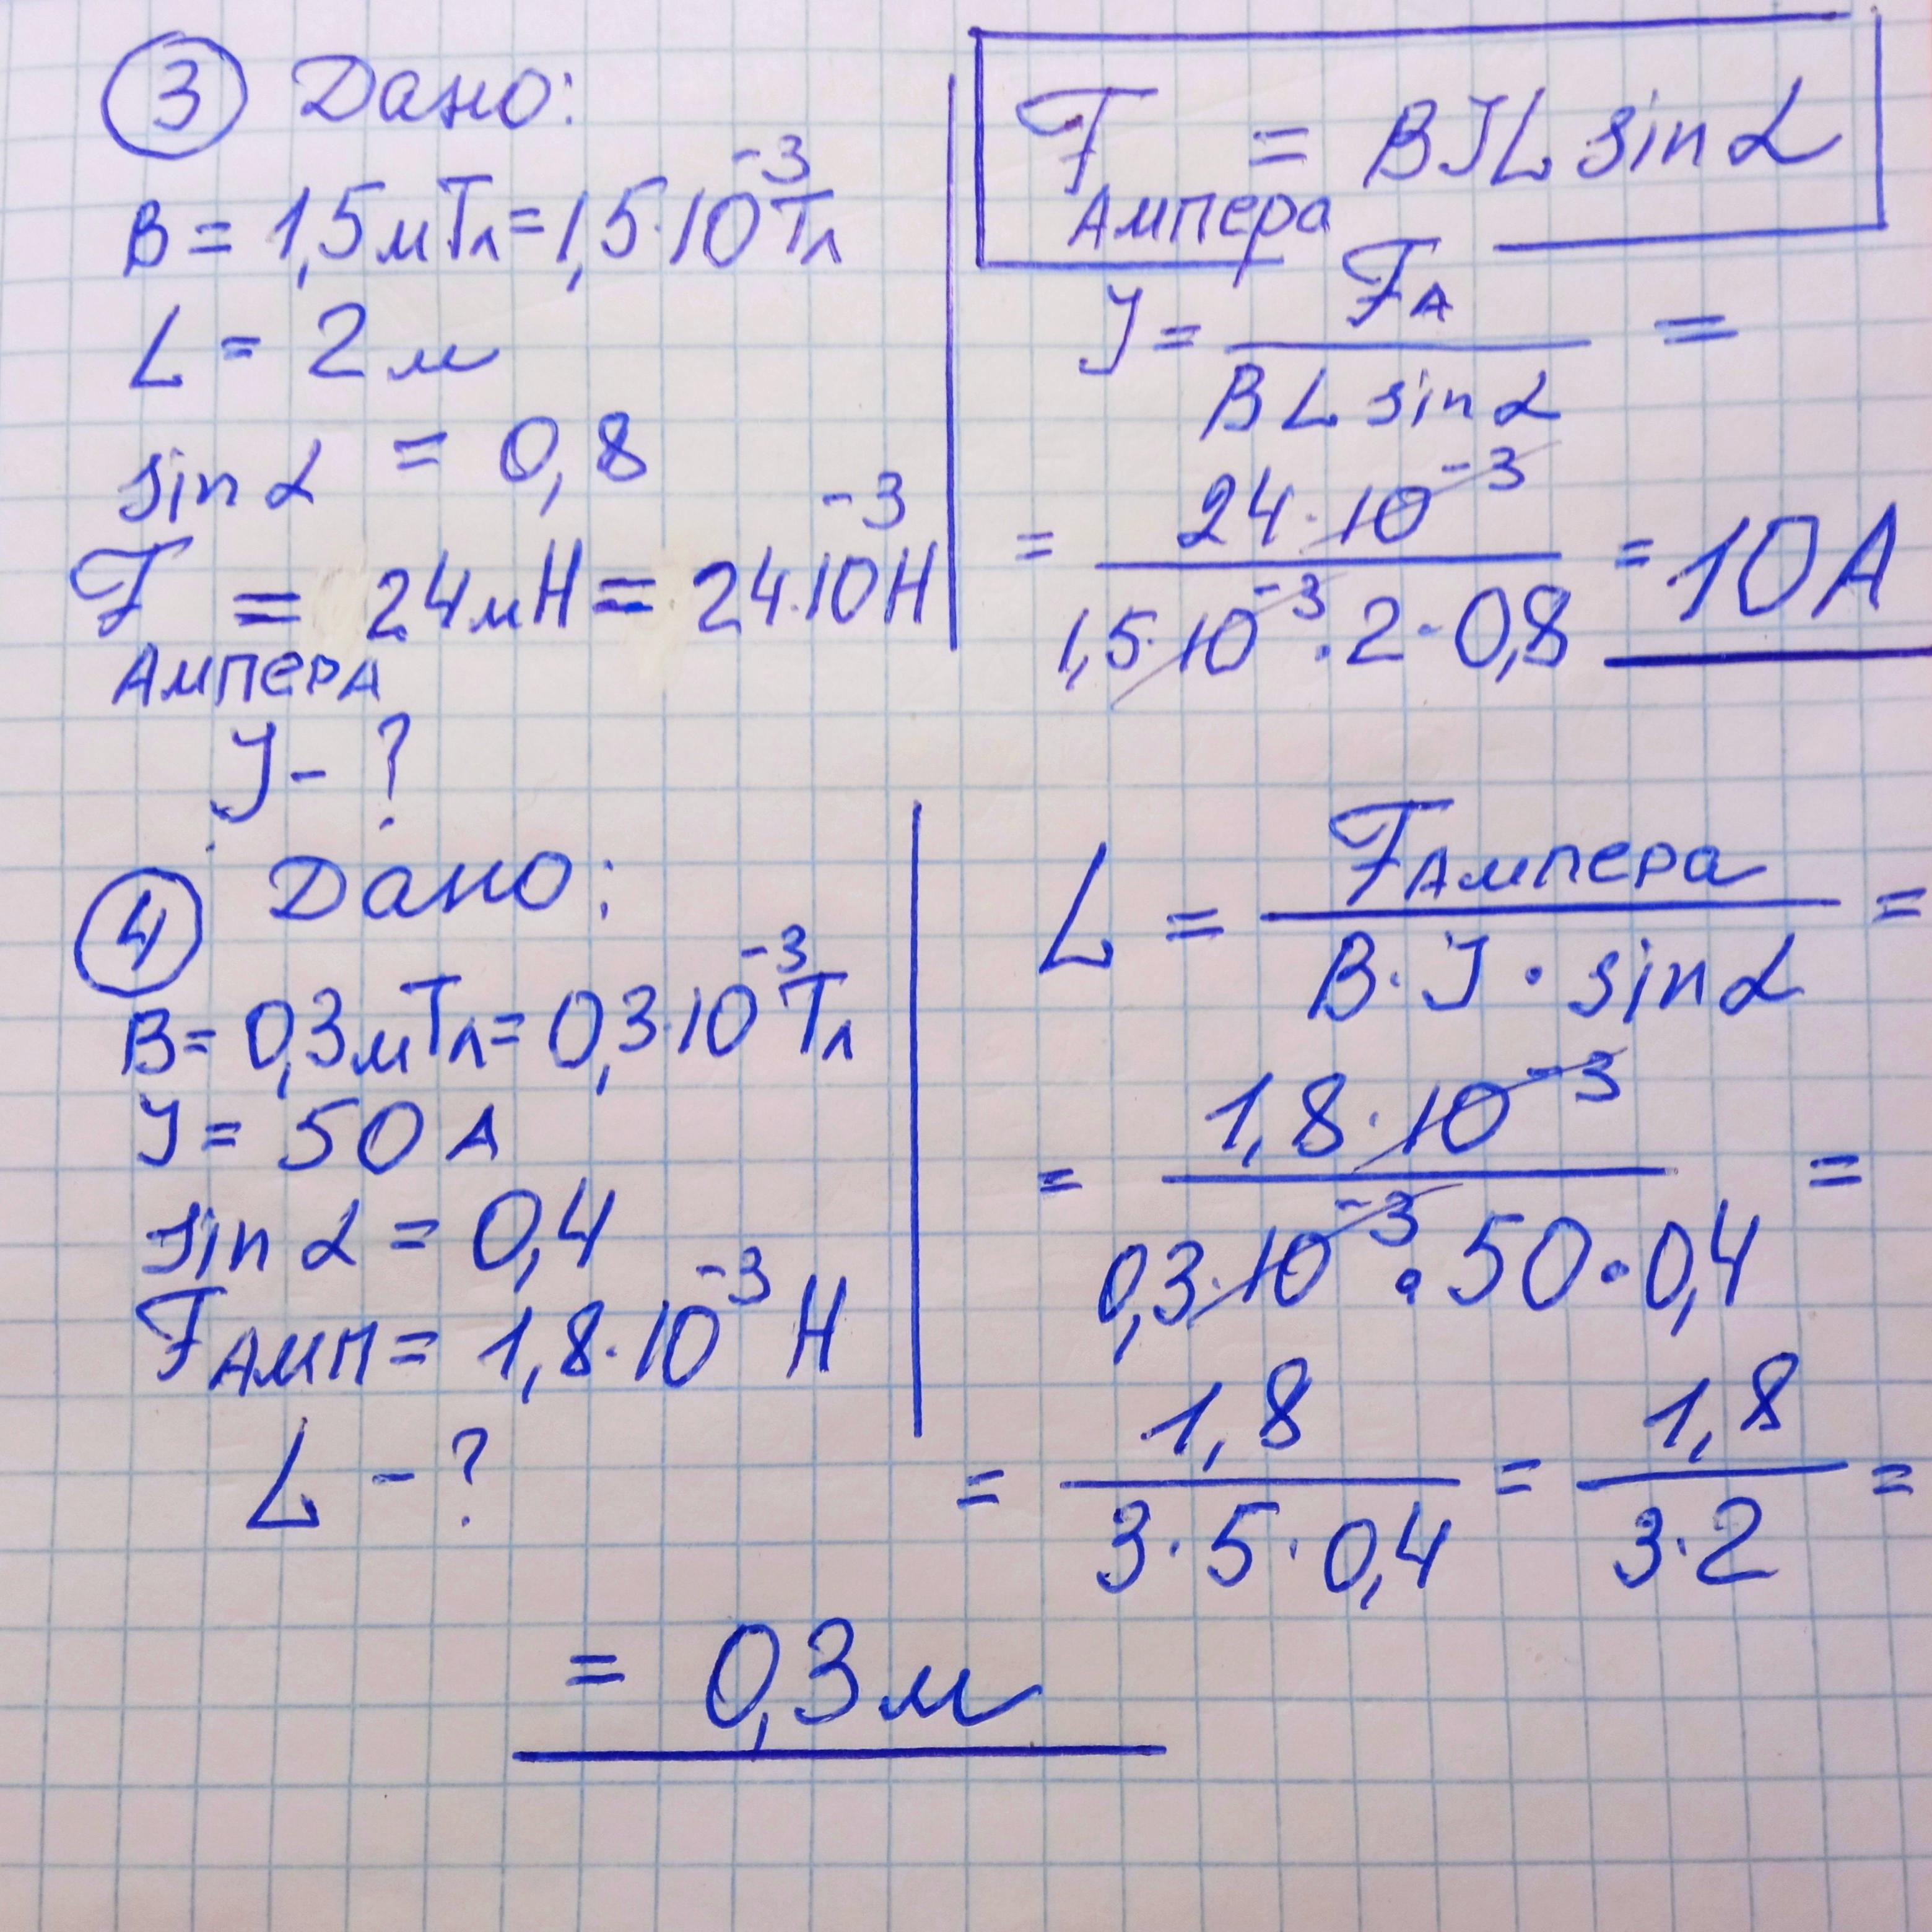 3 Дано:
B = 1,5мТл = 1,5·10⁻³Тл
L = 2м
sin α = 0,8
F Ампера = 24мН = 24·10⁻³Н
J - ?
F Ампера = BJL sin α
J = Fᴀ / (BL sin α) =
= 24·10⁻³ / (1,5·10⁻³·2·0,8) = 10А
4 Дано:
B = 0,3мТл = 0,3·10⁻³Тл
J = 50 А
sin α = 0,4
Fамп = 1,8·10⁻³ Н
L - ?
L = FАмпера / (B·J·sin α) =
= 1,8·10⁻³ / (0,3·10⁻³·50·0,4) =
= 1,8 / (3·5·0,4) = 1,8 / (3·2) =
= 0,3м